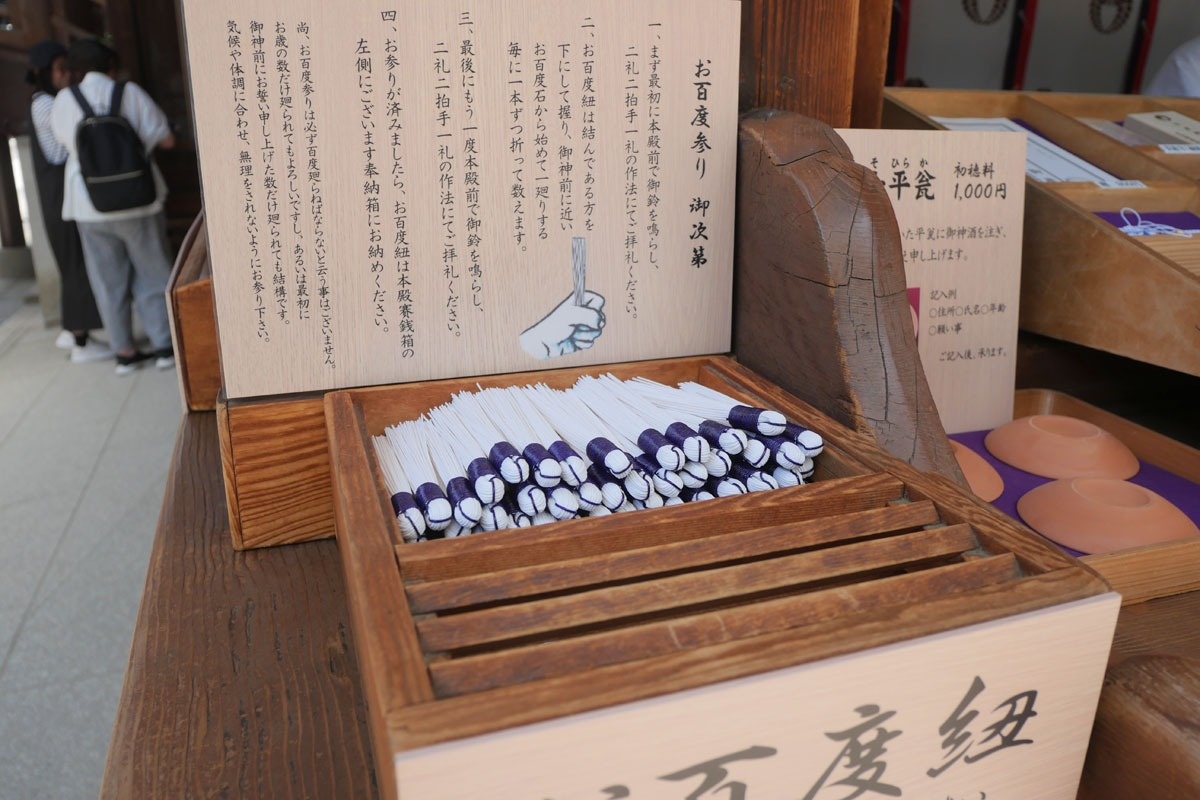 お百度参り 御次第
一、まず最初に本殿前で御鈴を鳴らし、
二礼二拍手一礼の作法にてご拝礼ください。
二、お百度紐は結んである方を
下にして握り、御神前に近い
お百度石から始めて一廻りする
毎に一本ずつ折って数えます。
三、最後にもう一度本殿前で御鈴を鳴らし、
二礼二拍手一礼の作法にてご拝礼ください。
四、お参りが済みましたら、お百度紐は本殿賽銭箱の
左側にございます奉納箱にお納めください。
尚、お百度参りは必ず百度廻らねばならないと云う事はございません。
お歳の数だけ廻られてもよろしいですし、あるいは最初に
御神前にお誓い申し上げた数だけ廻られても結構です。
気候や体調に合わせ、無理をされないようにお参り下さい。
そ ひらか
平瓮
初穂料
1,000円
た平瓮に御神酒を注ぎ、
申し上げます。
記入例
○住所○氏名○年齢
○願い事
ご記入後、承ります。
お百度紐